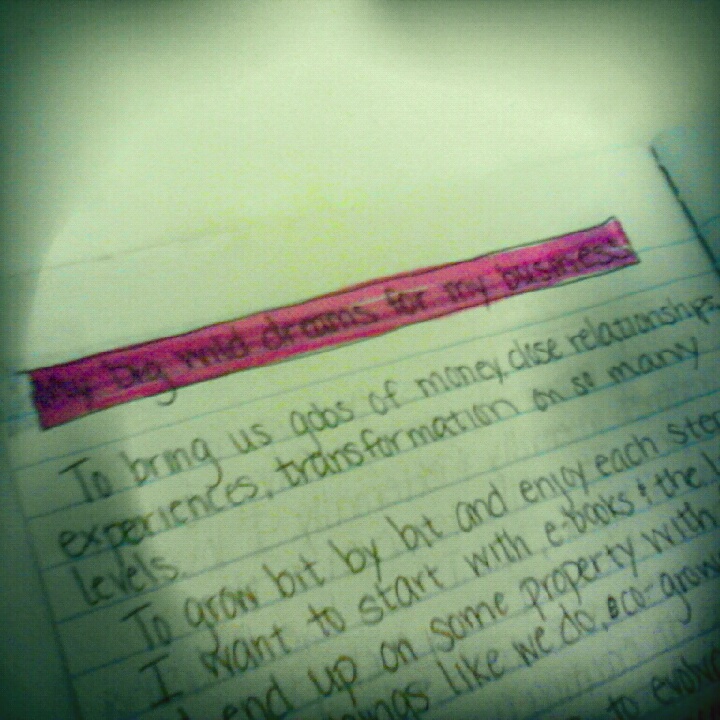 My big wild dreams for my business
To bring us gobs of money, close relationships
experiences, transformation on so many
levels.
To grow bit by bit and enjoy each step
I want to start with e-books & the
end up on some property with
like we do, eco-grow
to evolve